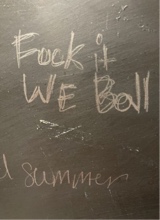 Fuck it
WE Ball
summer